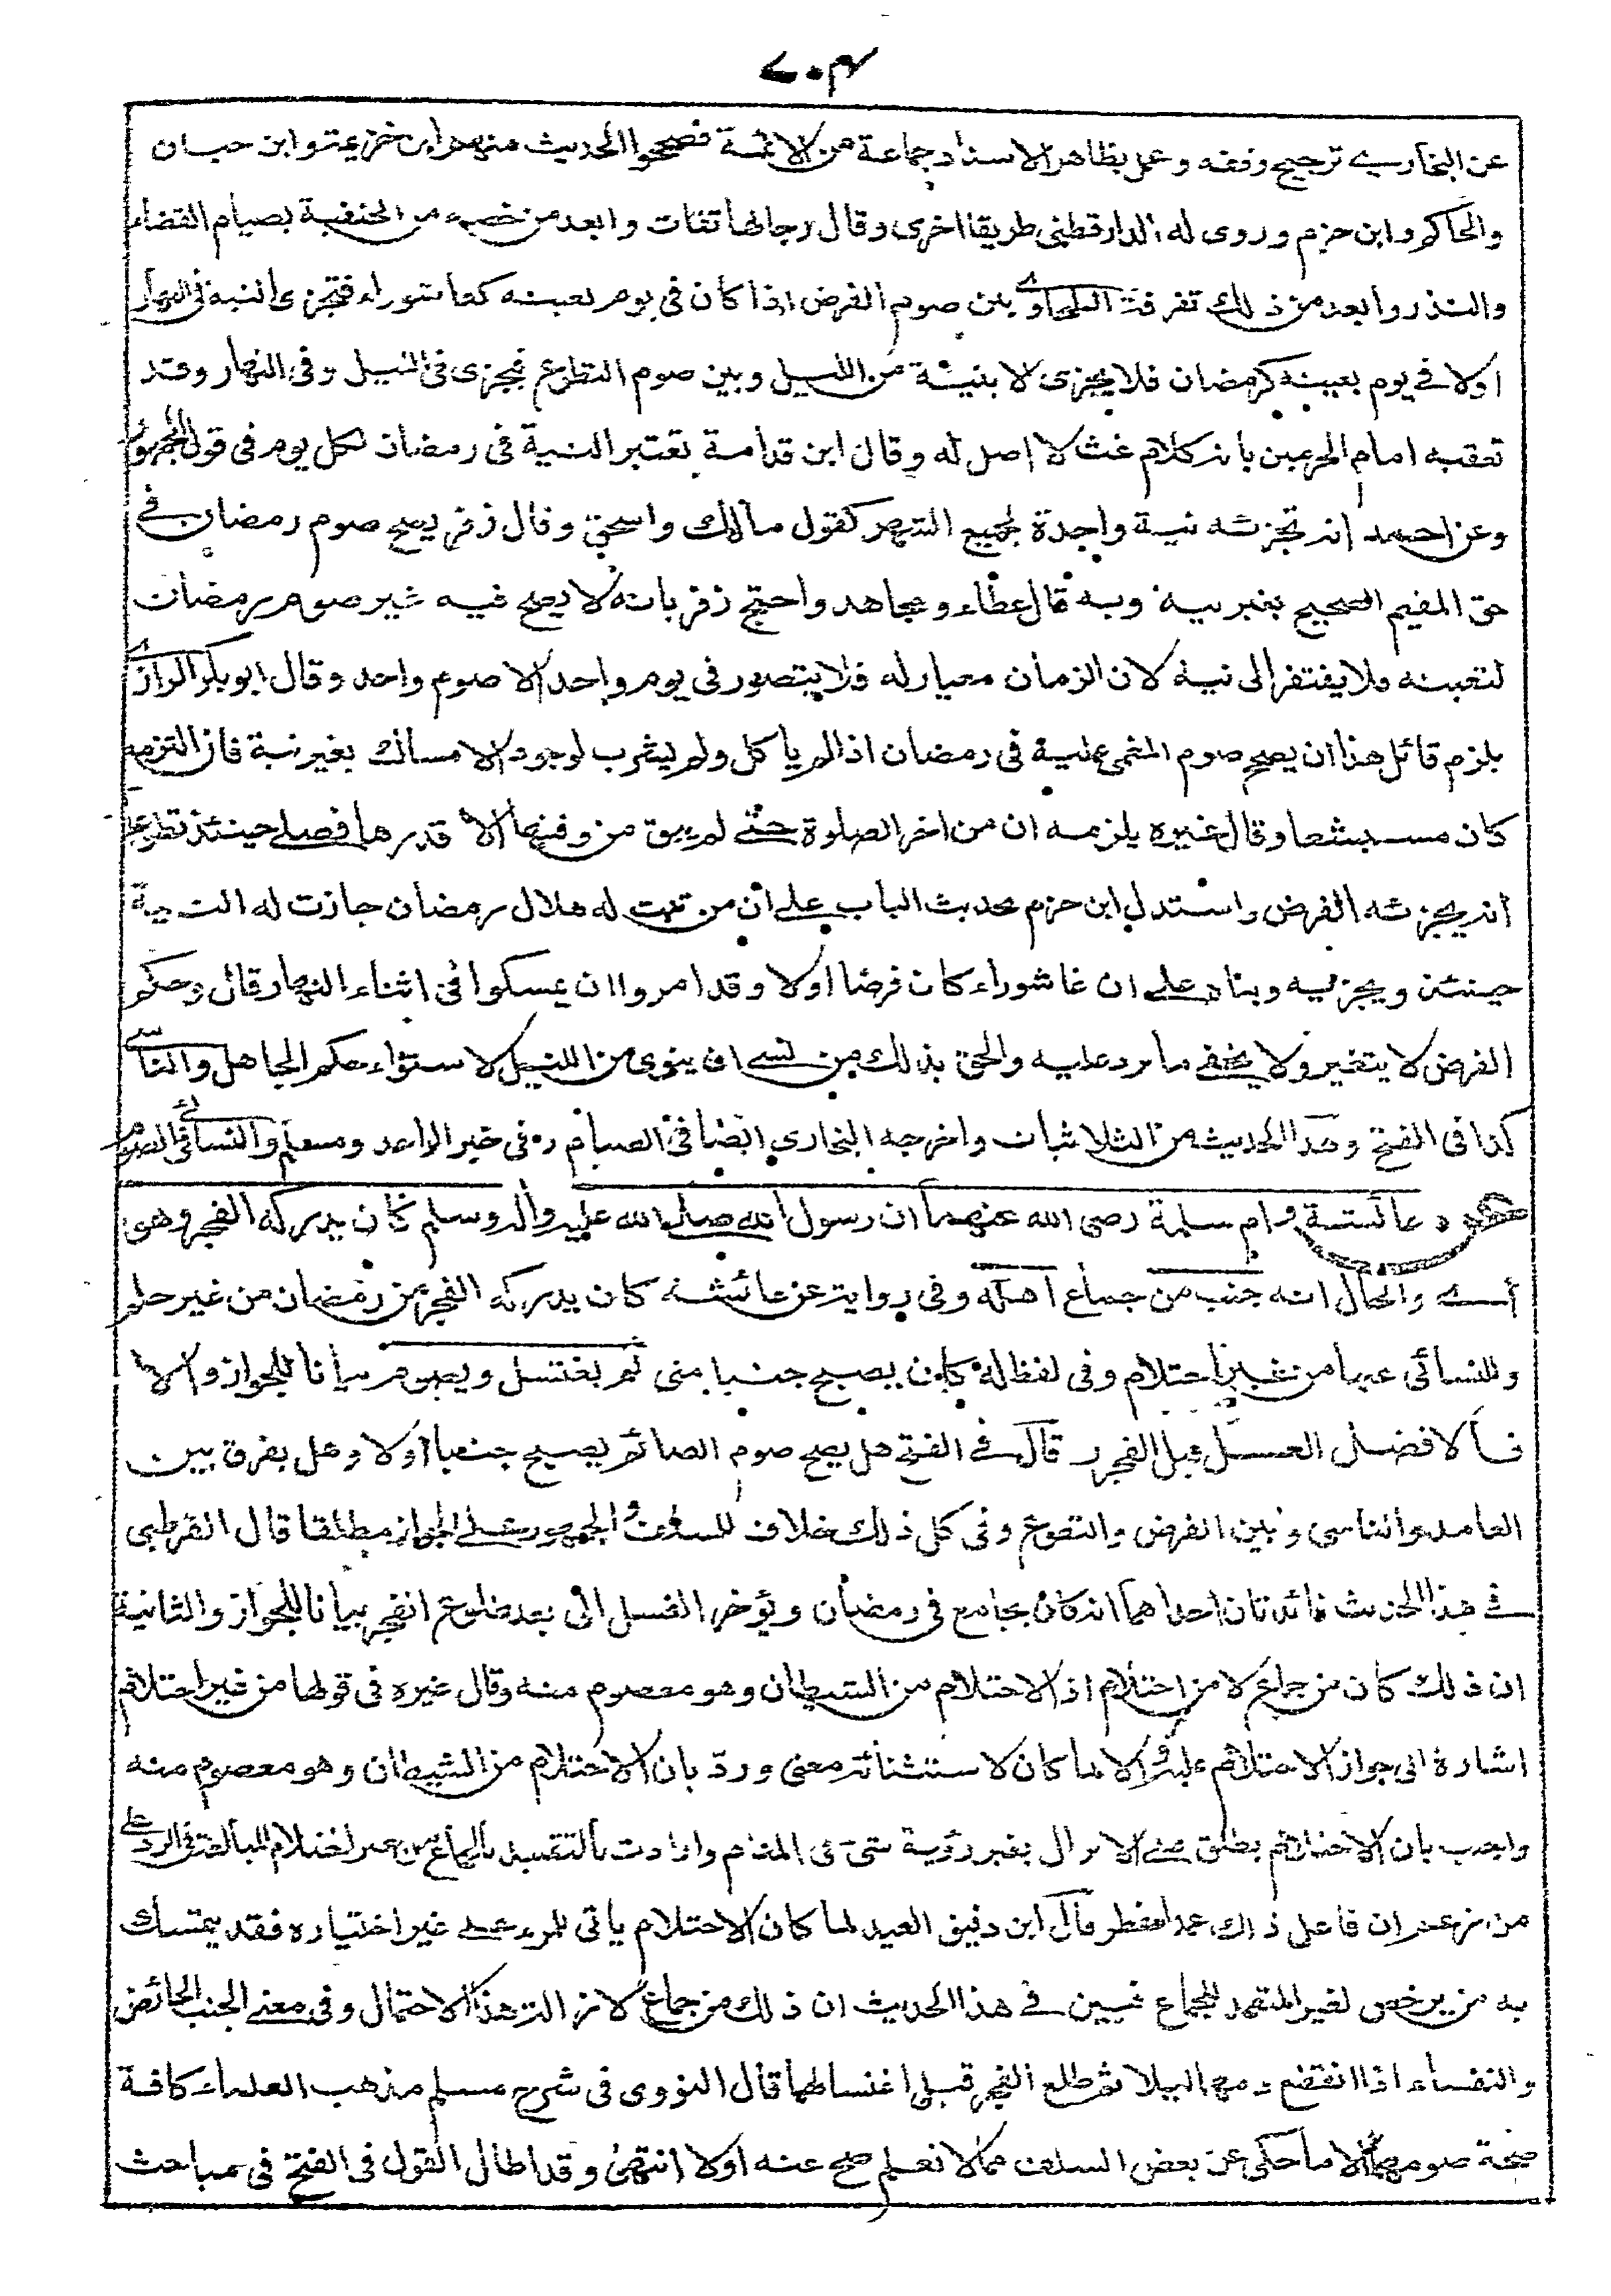 ٧٠٣
عن البخاري ترجيح وقفه وعمل بظاهر الاسناد جماعة من الائمة فصححوا الحديث منهم ابن خزيمة وابن حبان
والحاكم وابن حزم وروى له الدارقطنى طريقا اخرى وقال رجالها ثقات وابعد من خصه من الحنفية بصيام القضاء
والنذر وابعد من ذلك تفرقة الطحاوي بين صوم الفرض اذا كان فى يوم بعينه كعاشوراء فتجزى النية فى النهار
اولا في يوم بعينه كرمضان فلا يجزى الا بنية من الليل وبين صوم التطوع فيجزى فى الليل وفى النهار وقد
تعقبه امام الحرمين بانه كلام غث لا اصل له وقال ابن قدامة تعتبر النية فى رمضان لكل يوم فى قول الجمهور
وعن احمد انه تجزئه نية واحدة لجميع الشهر كقول مالك واسحق وقال زفر يصح صوم رمضان في
حق المقيم الصحيح بغير نية وبه قال عطاء ومجاهد واحتج زفر بانه لا يصح فيه غير صوم رمضان
لتعينه ولا يفتقر الى نية لان الزمان معيار له فلا يتصور فى يوم واحد الا صوم واحد وقال ابو بكر الرازي
يلزم قائل هذا ان يصح صوم المغمى عليه فى رمضان اذا لم ياكل ولم يشرب لوجود الامساك بغير نية فان التزمه
كان مستبشعا وقال غيره يلزمه ان من اخر الصلوة حتى لم يبق من وقتها الا قدرها فصلى حينئذ تطوعا
انه يجزئه الفرض واستدل ابن حزم بحديث الباب على ان من ثبت له هلال رمضان جازت له النية
حينئذ ويجزيه وبناه على ان عاشوراء كان فرضا اولا وقد امروا ان يمسكوا فى اثناء النهار قال وحكم
الفرض لا يتغير ولا يخفى ما يرد عليه والحق بذلك من نسي ان ينوى من الليل لاستواء حكم الجاهل والناسي
كذا فى الفتح وهذا الحديث من الثلاثيات واخرجه البخارى ايضا فى الصيام وفى خبر الواحد ومسلم والنسائي فى الصوم
عائشة وام سلمة رضى الله عنهما ان رسول الله صلى الله عليه واله وسلم كان يدركه الفجر وهو
أي والحال انه جنب من جماع اهله وفى رواية عن عائشة كان يدركه الفجر من رمضان من غير حلم
وللنسائى عنها من غير احتلام وفى لفظ له كان يصبح جنبا منى ثم يغتسل ويصوم بيانا للجواز والا
فالافضل الغسل قبل الفجر قال في الفتح هل يصح صوم الصائم يصبح جنبا اولا وهل يفرق بين
العامد والناسى وبين الفرض والتطوع وفى كل ذلك خلاف للسلف والجمهور على الجواز مطلقا قال القرطبى
في هذا الحديث فائدتان احداهما انه كان يجامع فى رمضان ويؤخر الغسل الى بعد طلوع الفجر بيانا للجواز والثانية
ان ذلك كان من جماع لا من احتلام اذ الاحتلام من الشيطان وهو معصوم منه وقال غيره فى قولها من غير احتلام
اشارة الى جواز الاحتلام عليه والا لما كان لاستثنائه معنى وردّ بان الاحتلام من الشيطان وهو معصوم منه
واجيب بان الاحتلام يطلق على الانزال بغير رؤية شيء فى المنام وارادت بالتقييد بالجماع من غير احتلام المبالغة فى الرد على
من زعم ان فاعل ذلك عمدا مفطر قال ابن دقيق العيد لما كان الاحتلام ياتى للمرء على غير اختياره فقد يتمسك
به من يرخص لغير المتعمد للجماع فبين في هذا الحديث ان ذلك من جماع لازالة هذا الاحتمال وفى معنى الجنب الحائض
والنفساء اذا انقطع دمها ليلا ثم طلع الفجر قبل اغتسالهما قال النووى فى شرح مسلم مذهب العلماء كافة
صحة صومهما الا ما حكى عن بعض السلف مما لا نعلم صح عنه اولا انتهى وقد اطال القول فى الفتح فى مباحث